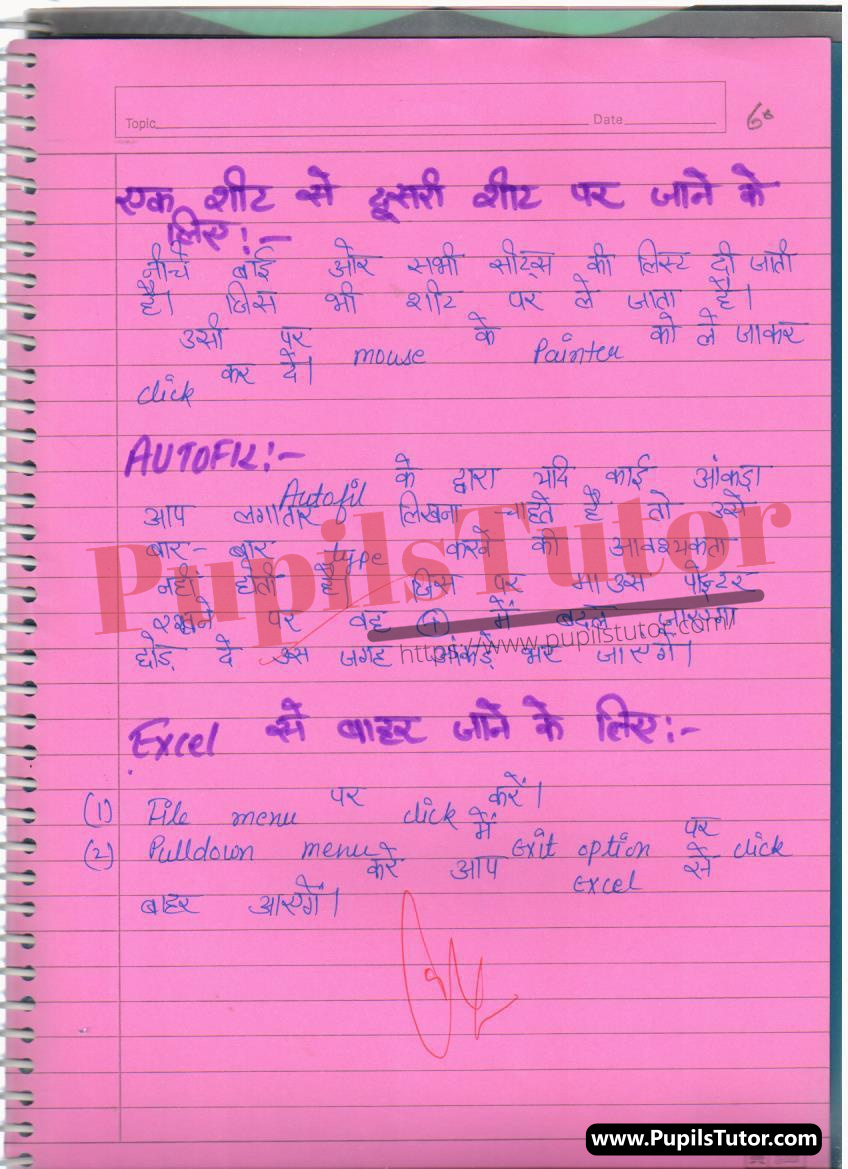 Topic Date 60
एक शीट से दूसरी शीट पर जाने के
लिए:-
नीचे बाई ओर सभी सीट्स की लिस्ट दी जाती
है। जिस भी शीट पर ले जाता है।
उसी पर mouse के Painter को ले जाकर
click कर दें।
AUTOFIL:-
Autofil के द्वारा यदि काई आंकड़ा
आप लगातार लिखना चाहते है तो उसे
बार-बार type करने की आवश्यकता
नही होती है। जिस पर माउस पोइन्टर
रखने पर वह + में बदल जाएगा
छोड़ दे उस जगह आंकड़े भर जाएगे।
PupilsTutor
https://www.pupilstutor.com/
Excel से बाहर जाने के लिए:-
(1) File menu पर click करें।
(2) Pulldown menu में Exit option पर click
करे आप Excel से
बाहर आएगें।
www.PupilsTutor.com